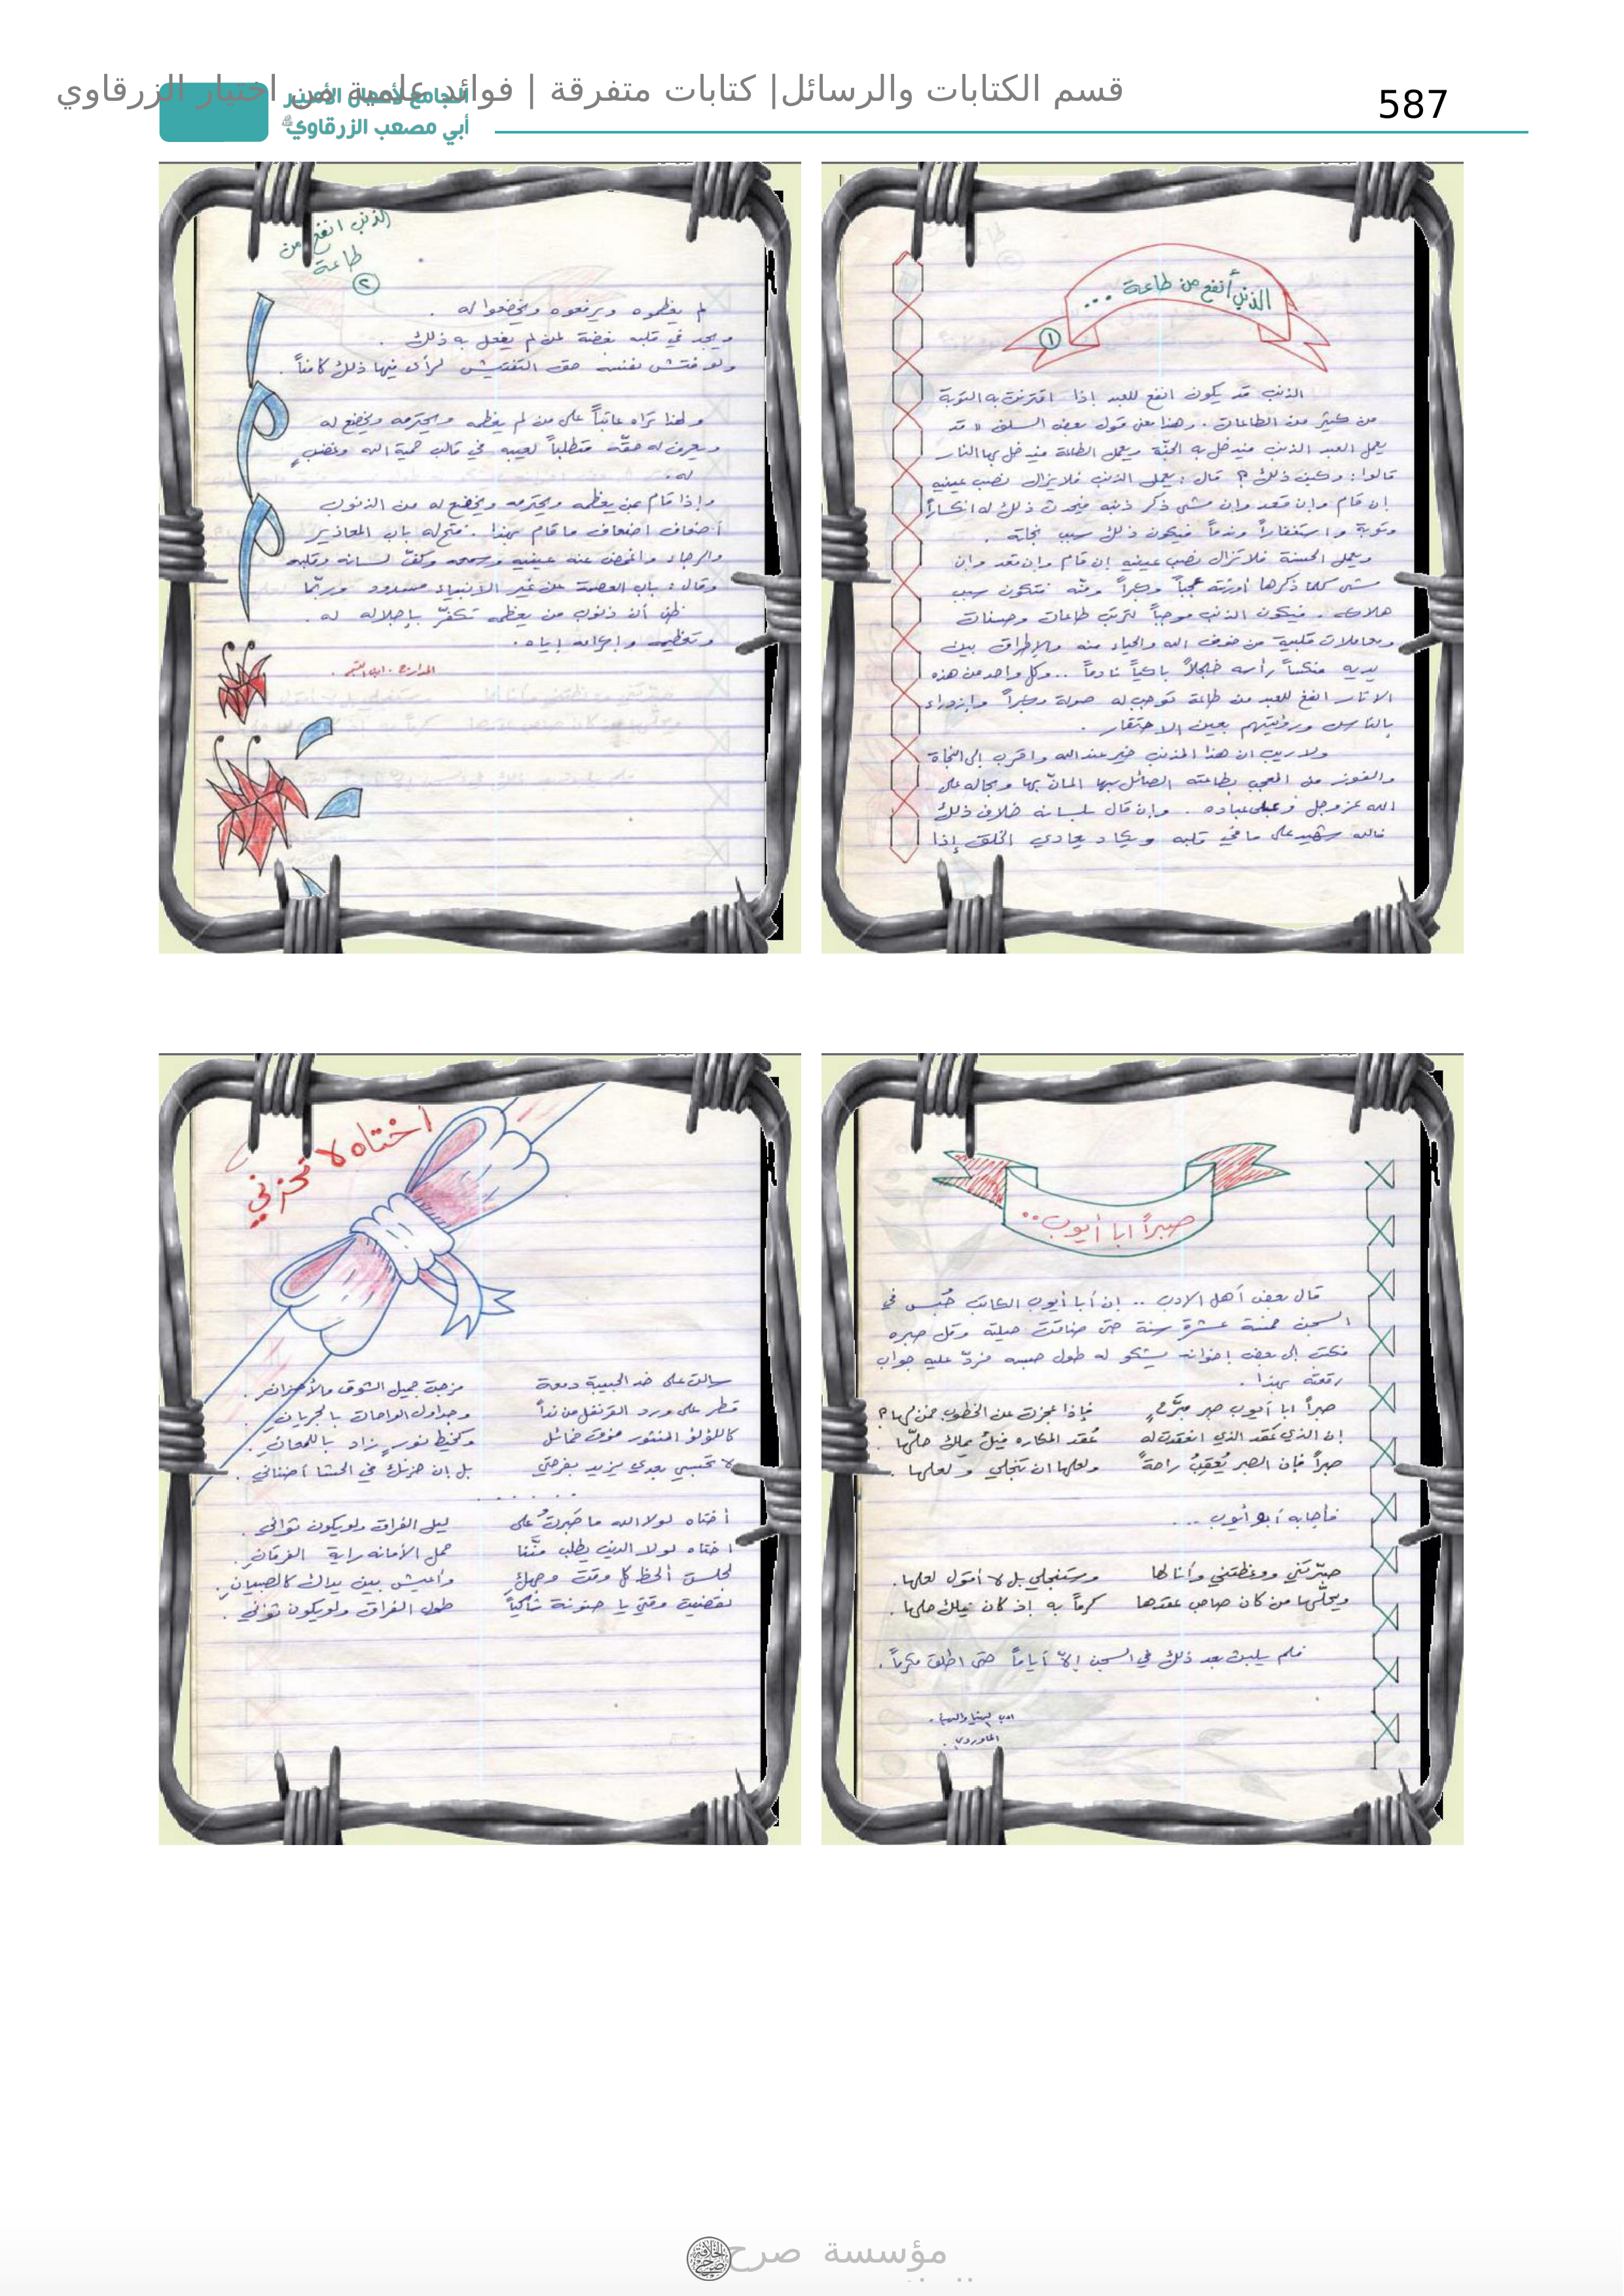 قسم الكتابات والرسائل| كتابات متفرقة | فوائد علمية من اختيار الزرقاوي
587
الجامع لأعمال الأمير
أبي مصعب الزرقاوي
الذنب أنفع من طاعة ...
١
الذنب قد يكون انفع للعبد إذا اقترنت به التوبة
من كثير من الطاعات . وهذا معنى قول بعض السلف « قد
يعمل العبد الذنب فيدخل به الجنّة ويعمل الطاعة فيدخل بها النار
قالوا : وكيف ذلك ؟ قال : يعمل الذنب فلا يزال نصب عينيه
إن قام وإن قعد وإن مشى ذكر ذنبه فيحدث ذلك له انكساراً
وتوبة واستغفاراً وندماً فيكون ذلك سبب نجاته .
ويعمل الحسنة فلا تزال نصب عينيه إن قام وإن قعد وإن
مشى كلما ذكرها أورثته عجباً وكبراً ومنّه فتكون سبب
هلاكه . فيكون الذنب موجباً لترتب طاعات وحسنات
ومعاملات قلبية من خوف الله والحياء منه والإطراق بين
يديه منكساً رأسه خجلاً باكياً نادماً .. وكل واحد من هذه
الاثار انفع للعبد من طاعة توجب له صولة وكبراً وازدراء
بالناس ورؤيتهم بعين الاحتقار .
ولا ريب ان هذا المذنب خير عند الله واقرب إلى النجاة
والفوز من المعجب بطاعته الصائل بها المانّ بها وبحاله على
الله عز وجل وعلى عباده . وإن قال بلسانه خلاف ذلك
فالله شهيد على ما في قلبه ويكاد يعادي الخلق إذا
الذنب انفع من
طاعة
٢
لم يعظموه ويرفعوه ويخضعوا له .
ويجد في قلبه بغضة لمن لم يفعل به ذلك .
ولو فتش نفسه حق التفتيش لرأى فيها ذلك كامناً .
ولهذا تراه عاتباً على من لم يعظمه ويحترمه ويخضع له
ويعرف له حقّه متطلباً لعيبه في قالب حمية الله وغضبٍ
له .
وإذا قام بمن يعظمه ويحترمه ويخضع له من الذنوب
أضعاف اضعاف ما قام بهذا . فتح له باب المعاذير
والرجاء واغمض عنه عينيه وسمعه وكفّ لسانه وقلبه
وقال : باب العصمة عن غير الانبياء مسدود وربّما
ظن أن ذنوب من يعظمه تكفّر بإجلاله له .
وتعظيمه وإكرامه إياه .
المدارج . ابن القيم .
صبراً ابا أيوب ..
قال بعض أهل الادب .. إن أبا أيوب الكاتب حُبس في
السجن خمسة عشرة سنة حتى ضاقت حيلته وقل صبره
فكتب إلى بعض إخوانه يشكو له طول حبسه فردّ عليه جواب
رقعته بهذا .
صبراً ابا أيوب صبر مبرّحٍ فإذا عجزت عن الخطوب فمن لها ؟
إن الذي عقد الذي انعقدت له عُقد المكاره فيك يملك حلّها .
صبراً فإن الصبر يُعقِبُ راحةً ولعلها ان تنجلي ولعلها .
فأجابه أبو أيوب ...
صبّرتني ووعظتني وأنا لها وستنجلي بل لا أقول لعلها .
ويحلّها من كان صاحب عقدها كرماً به إذ كان يملك حلها .
فلم يلبث بعد ذلك في السجن إلاّ أياماً حتى اطلق مكرماً .
ادب الدنيا والدين .
الماوردي .
أختاه لا تحزني
سالت على خد الحبيبة دمعة مزجت جميل الشوق بالأحزان .
قطر على ورد القرنفل من نداً وجداول الواحات بالجريان .
كاللؤلؤ المنثور فوق خمائل وكخيط نورٍ زاد باللمعان .
لا تحسبي بعدي يزيد بفرحتي بل إن حزنك في الحشا أضناني .
. . . . . .
أختاه لولا الله ما صَبرتُ على ليل الفراق ولو يكون ثواني .
اختاه لولا الدين يطلب منّنا حمل الأمانه راية الفرقان .
لجلست ألحظ كل وقت وجهكِ وأعيش بين يداك كالصبيان .
لقضيت وقتي يا حنونة شاكياً طول الفراق ولو يكون ثواني .
مؤسسة صرح